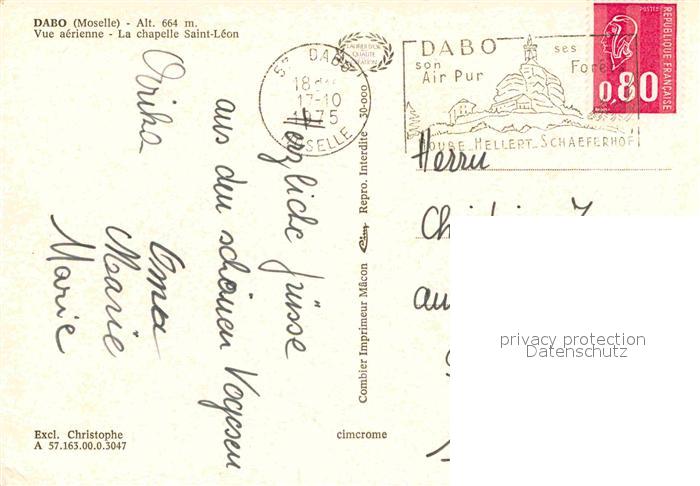 DABO (Moselle) - Alt. 664 m.
Vue aérienne - La chapelle Saint-Léon
57 DABO
18
17-10
1975
MOSELLE
LAURIER D'OR
QUALITÉ
DABO
son
Air Pur
ses
Forêts
HOUBE_HELLERT_SCHAEFERHOF
POSTES
REPUBLIQUE FRANÇAISE
0,80
Herzliche Grüsse
aus den schönen Vogesen
Oma
Marie
Marie
Combier Imprimeur Mâcon Cim Repro. Interdite 30-000
Herrn
au
privacy protection
Datenschutz
Excl. Christophe
A 57.163.00.0.3047
cimcrome